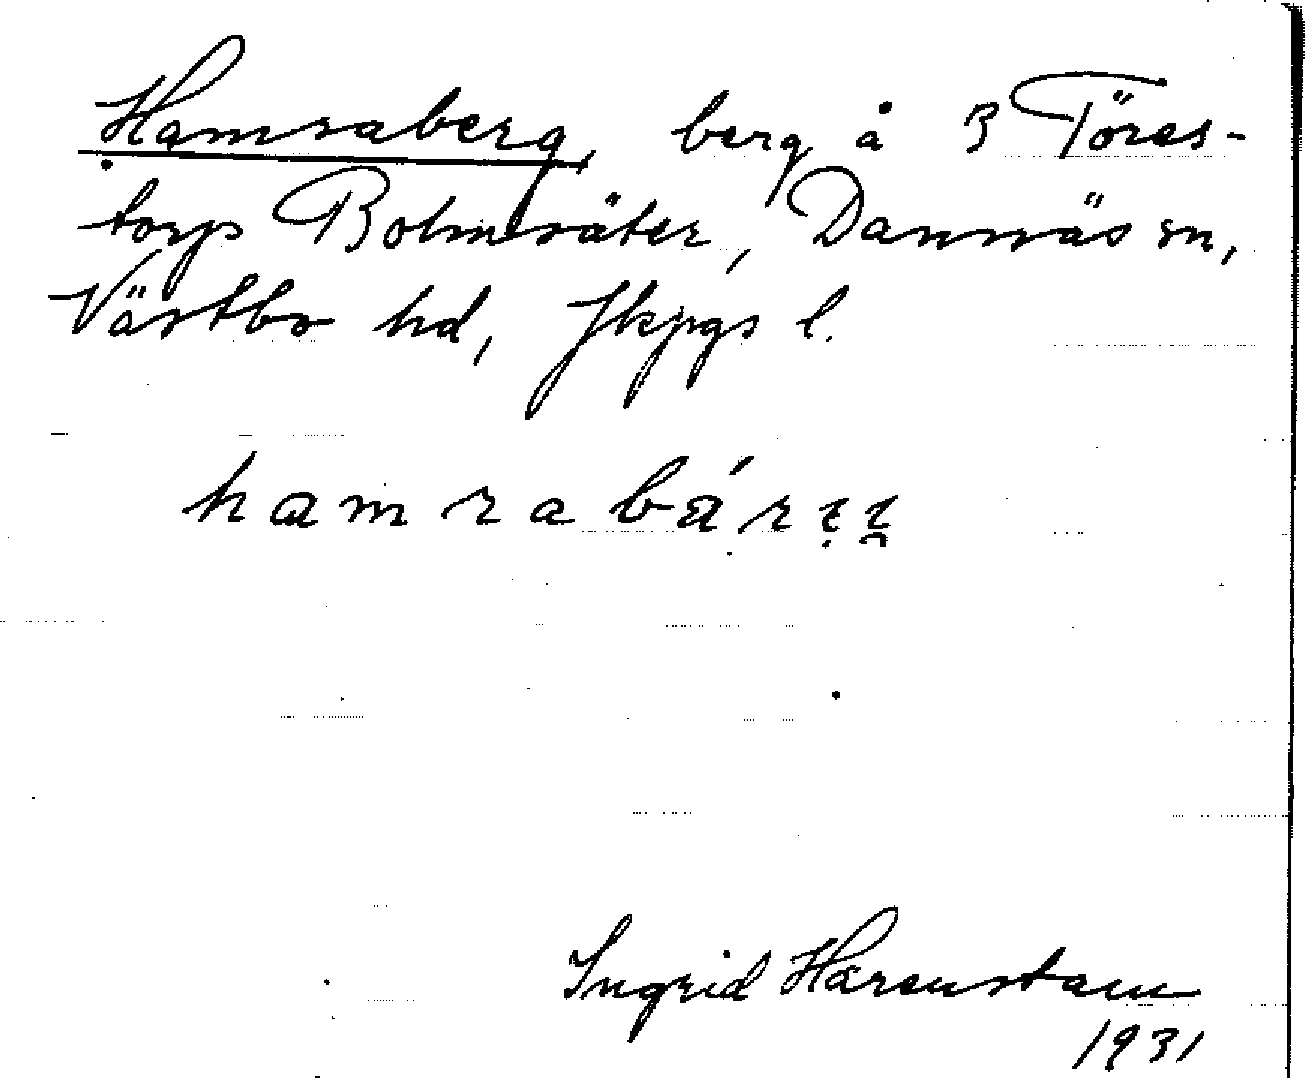 Hamraberg, berg å 3 Töres-
torps Bolmsäter, Dannäs sn,
Västbo hd, Jkpgs l.
hamrabár
Ingrid Harenstam
1931